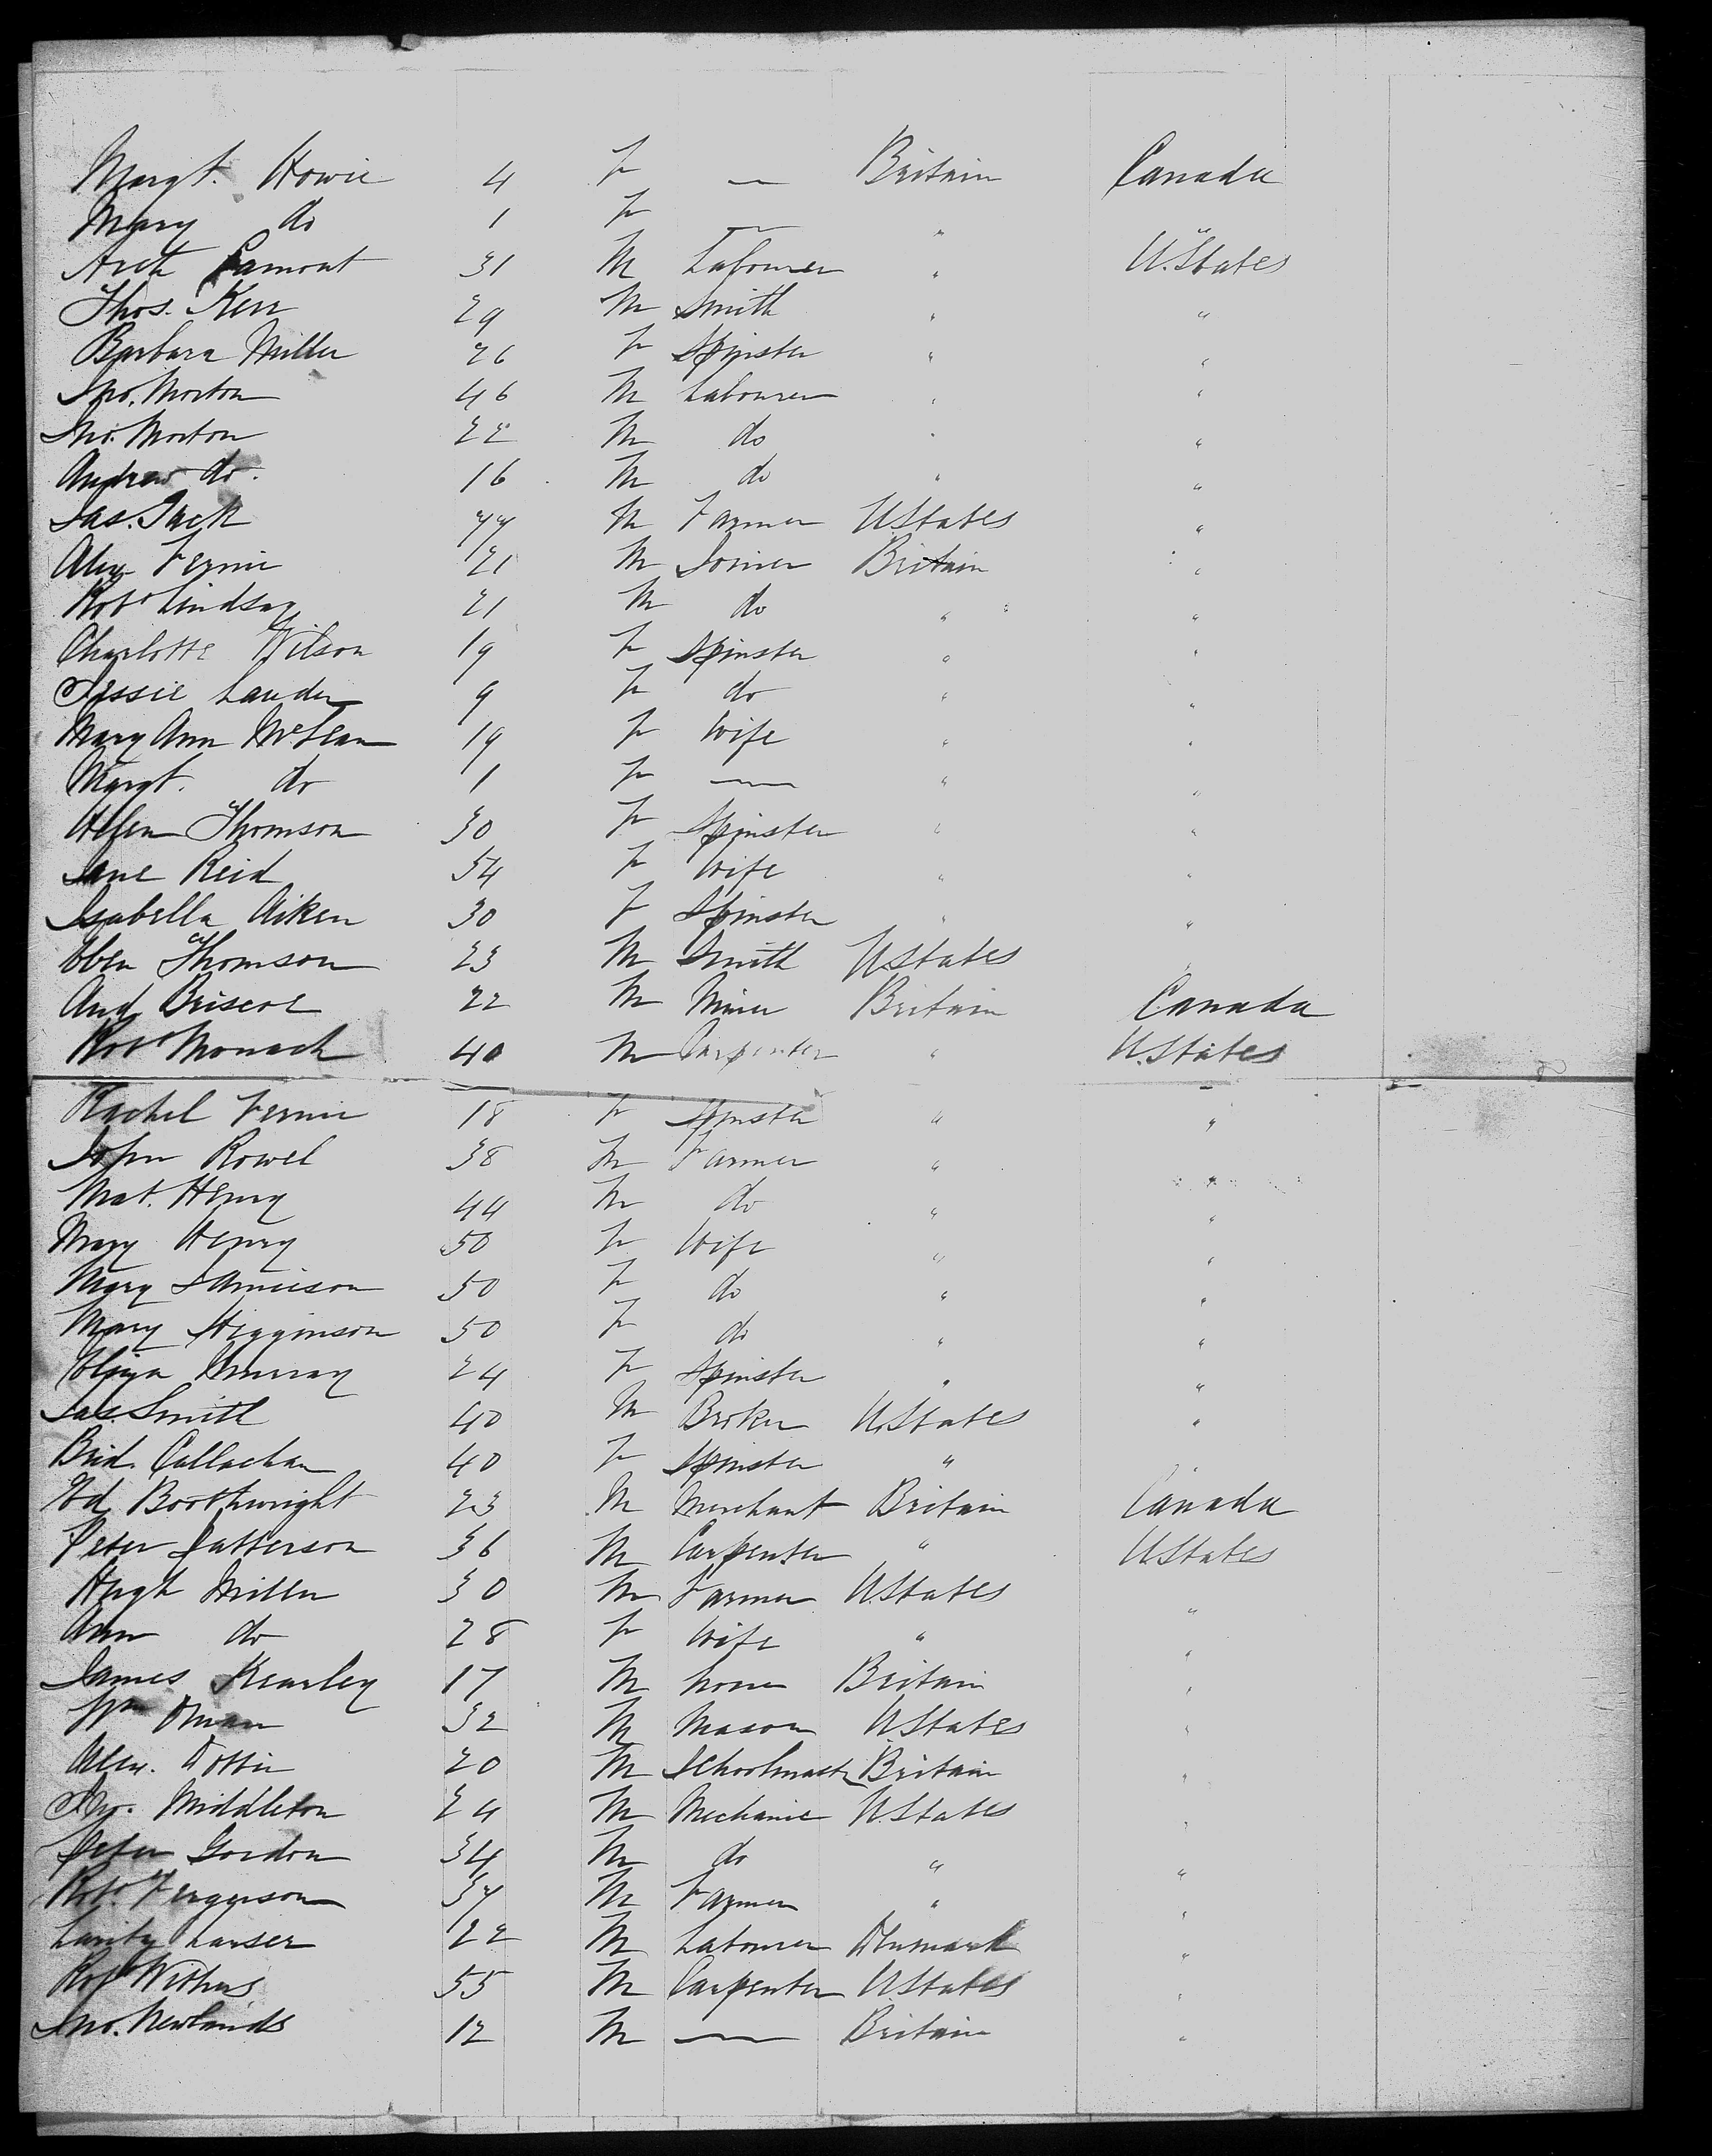 Margt. Howie 4 F — Britain Canada
Mary do 1 F — " "
Arch Lamont 31 M Labourer " U.States
Thos. Kerr 29 M Smith " "
Barbara Miller 26 F Spinster " "
Jno. Morton 46 M Labourer " "
Jno. Morton 22 M do " "
Andrew do. 16 M do " "
Jas. Jack 44 M Farmer U.States "
Alex Fernie 21 M Joiner Britain "
Robt Lindsay 21 M do " "
Charlotte Wilson 19 F Spinster " "
Jessie Lauder 9 F do " "
Mary Ann McLean 19 F Wife " "
Margt. do 1 F — " "
Helen Thomson 30 F Spinster " "
Jane Reid 54 F Wife " "
Isabella Aiken 30 F Spinster " "
Eben Thomson 23 M Smith U.States "
And Briscoe 22 M Miner Britain Canada
Robt Monach 40 M Carpenter " U.States
Rachel Fernie 18 F Spinster " "
John Rowel 38 M Farmer " "
Mat. Henry 44 M do " "
Mary Henry 50 F Wife " "
Mary Jamieson 50 F do " "
Mary Higginson 50 F do " "
Eliza Murray 24 F Spinster " "
Jas. Smith 40 M Broker U.States "
Brid. Callachan 40 F Spinster " "
Ed. Boothwright 23 M Merchant Britain Canada
Peter Patterson 36 M Carpenter " U.States
Hugh Miller 30 M Farmer U.States "
Ann do 28 F Wife " "
James Kearley 17 M None Britain "
Wm 32 M Mason U.States "
Alex. Dobbie 20 M Schoolmastr Britain "
Jno. Middleton 24 M Mechanic U.States "
Peter Gordon 34 M do " "
Robt. Ferguson 34 M Farmer " "
22 M Labourer Denmark "
Robt Withers 55 M Carpenter U.States "
Jno. Newlands 12 M — Britain "